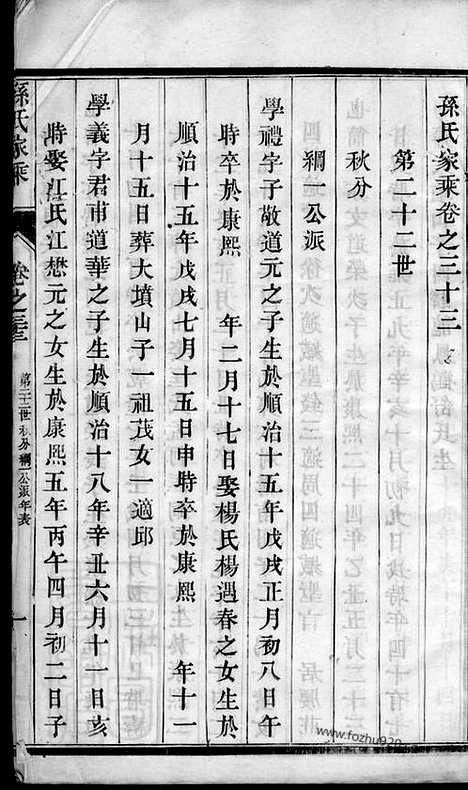 孫氏家乘卷之三十三
第二十二世
秋分
綱一公派
學禮字子敬道元之子生於順治十五年戊戌正月初八日午
時卒於康熙 年二月十七日娶楊氏楊遇春之女生於
順治十五年戊戌七月十五日申時卒於康熙 年十一
月十五日葬大墳山子一祖茂女一適邱
學義字君甫道華之子生於順治十八年辛丑六月十一日亥
時娶江氏江懋元之女生於康熙五年丙午四月初二日子
孫氏家乘
卷之三十三
第二十二世秋分綱一公派年表
一
www.fozhu920.com